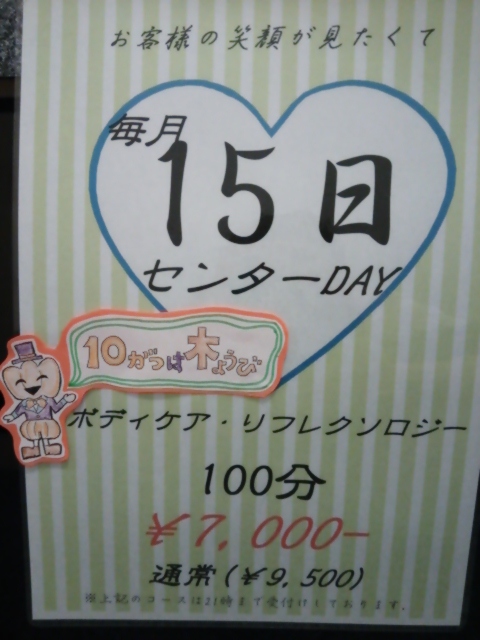 お客様の笑顔が見たくて
毎月
15日
センターDAY
10がつは木ようび
ボディケア・リフレクソロジー
100分
¥7,000-
通常(¥9,500)
※上記のコースは21時まで受付けしております。